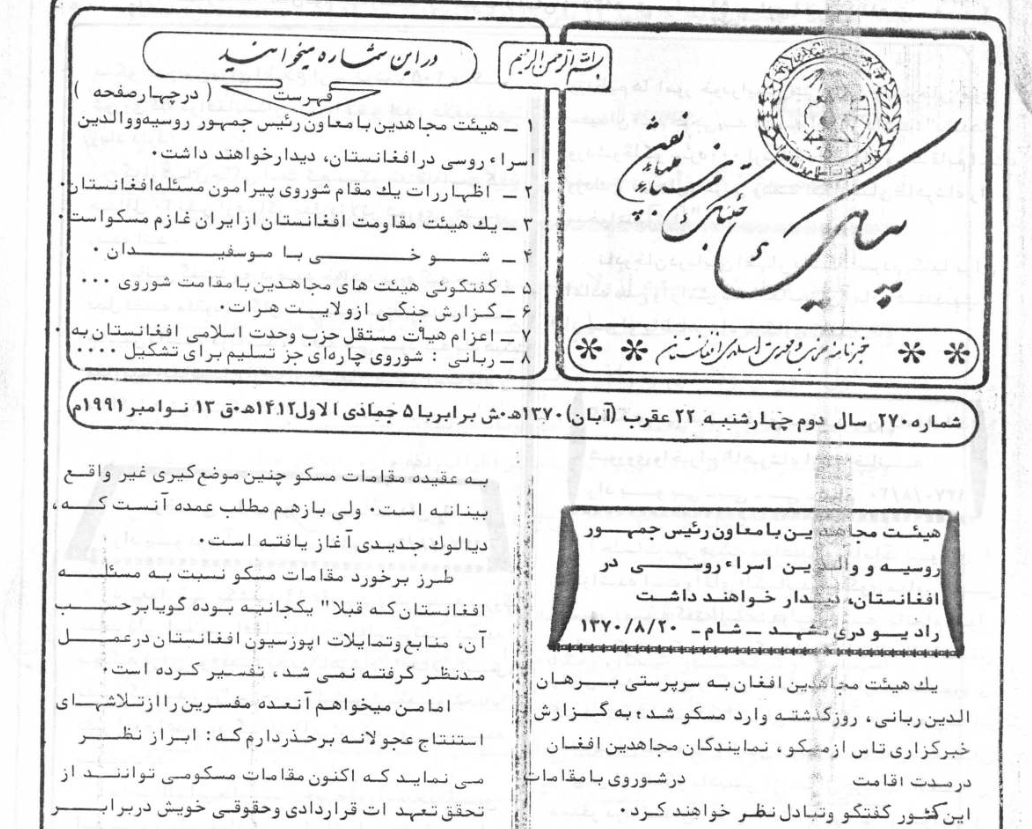 بسم الله الرحمن الرحیم
پیام
خبرنامه
دراین شماره میخوانید
فهرست ( درچهارصفحه )
۱ ــ هیئت مجاهدین بامعاون رئیس جمهور روسیه‌ووالدین
اسراء روسی درافغانستان، دیدارخواهند داشت۰
۲ ــ اظهاررات یك مقام شوروی پیرامون مسئله‌افغانستان۰
۳ ــ یك هیئت مقاومت افغانستان ازایران عازم مسکواست۰
۴ ــ شـــوخـــــــی بـا مـوسفیـــــــدان ۰
۵ ــ گفتگوئی هیئت های مجاهدین بامقامت شوروی ۰۰۰
۶ ــ گـزارش جنگـی ازولایـــت هرات۰
۷ ــ اعزام هیأت مستقل حزب وحدت اسلامی افغانستان به ۰
۸ ــ ربانی : شوروی چاره‌ای جز تسلیم برای تشکیل ۰۰۰۰
شماره ۲۷۰ سال دوم چهارشنبـه ۲۲ عقرب (آبان) ۱۳۷۰هـ۰ش برابربا ۵ جمادی الاول۱۴۱۲هـ۰ق ۱۳ نـوامبر ۱۹۹۱م)
هیئـت مجاهدین بامعاون رئیس جمهـــور
روسیـه و والدین اسراء روســــی در
افغانستان، دیـدار خواهنـد داشـت
رادیــو دری مشهـد ــ شام ــ ۱۳۷۰/۸/۲۰
یك هیئت مجاهدین افغان بـه سرپرستی بـــرهـان
الدین ربانی ، روزگذشته وارد مسکو شد؛ به گــزارش
خبرگزاری تاس ازمسکو ، نمایندگان مجاهدین افغـان
درمـدت اقامت درشوروی بامقامات
این کشـور گفتگو وتبادل نظـر خواهنـد کـرد۰
بـه عقیده مقامات مسکو چنین موضع گیری غیر واقـع
بینانـه اسـت۰ ولی بازهـم مطلب عمده آنسـت کــه،
دیالوك جدیـدی آغاز یافتـه اسـت۰
طـرز برخورد مقامات مسکو نسبت بـه مسئلــــه
افغانستان کـه قبلا" یکجانبـه بـوده گویابرحســـب
آن، منابع‌وتمایلات اپوزسیون افغانستان درعمـــل
مـدنظـر گرفتـه نمی شد، تفسـیر کـرده است۰
امامـن میخواهـم آنعـده مفسـرین راازتـلاشهــای
استنتاج عجولانـه برحـذردارم کـه: ابراز نظـــر
می نمایـد کـه اکنون مقامات مسکومـی تواننـــد از
تحقق تعهـد ات قراردادی وحقوقـی خویش دربرابـــر